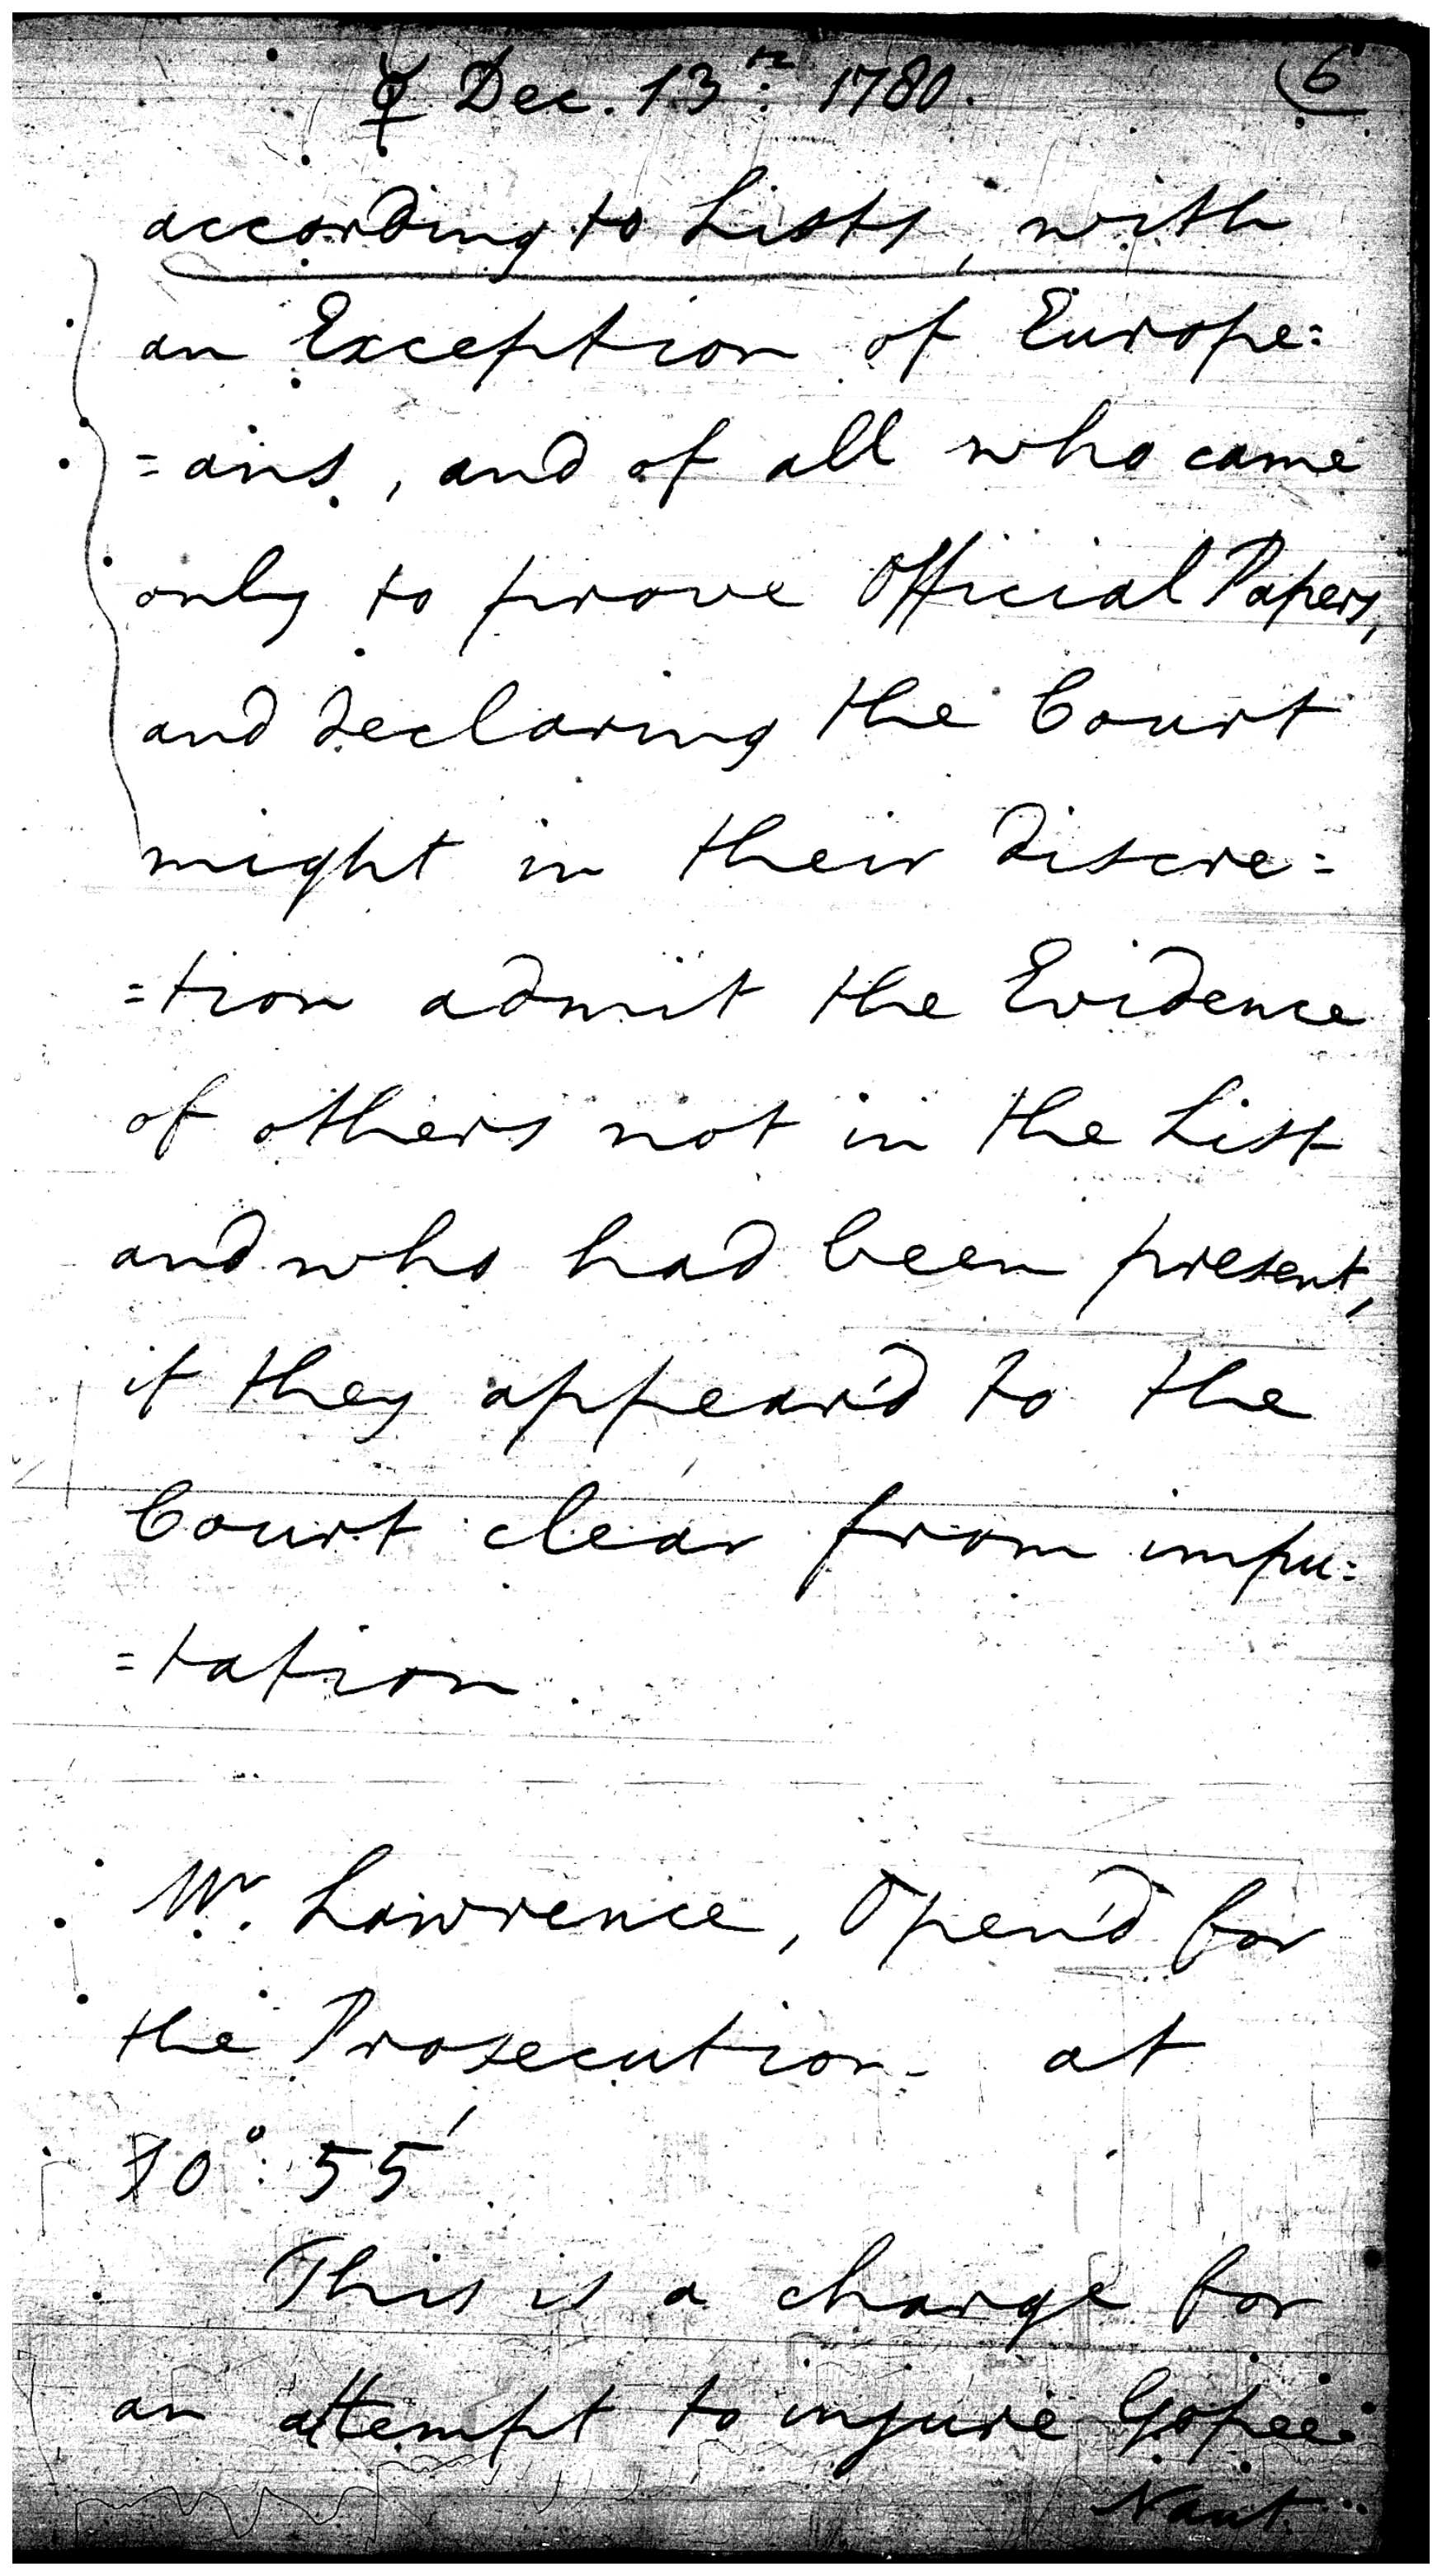 ☿ Dec. 13th: 1780. 6
according to Lists, with
an Exception of Europe=
=ans, and of all who came
only to prove Official Papers,
and declaring the Court
might in their discre=
=tion admit the Evidence
of others not in the List
and who had been present,
if they appear'd to the
Court clear from impu=
=tation.
Mr. Lawrence, Open'd for
the Prosecution - at
10°: 55'
This is a charge for
an attempt to injure Gopee=
Naut.